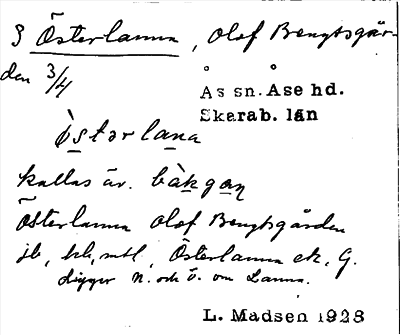 § Österlanna, Olof Bengtsgår-
den 3/4
Ås sn. Åse hd.
Skarab. län
òstərlana
kallas äv. bàkgaŋ
Österlanna Olof Bengtsgården
jb, kb, mtl, Österlanna ek. G.
Ligger N. och Ö. om Lanna.
L. Madsen 1928